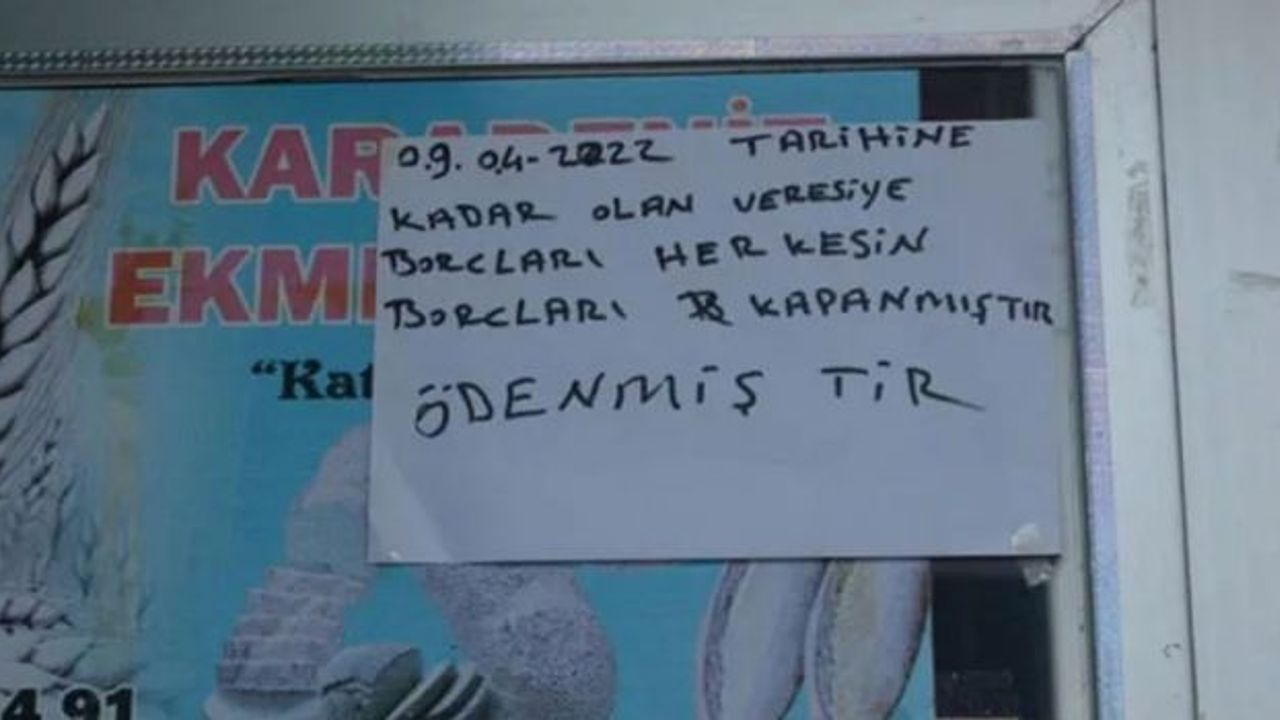 KAR
EKM
"Kat
09.04-2022 TARİHİNE
KADAR OLAN VERESİYE
BORCLARI HERKESİN
BORCLARI KAPANMIŞTIR
ÖDENMİŞ TİR
4 91